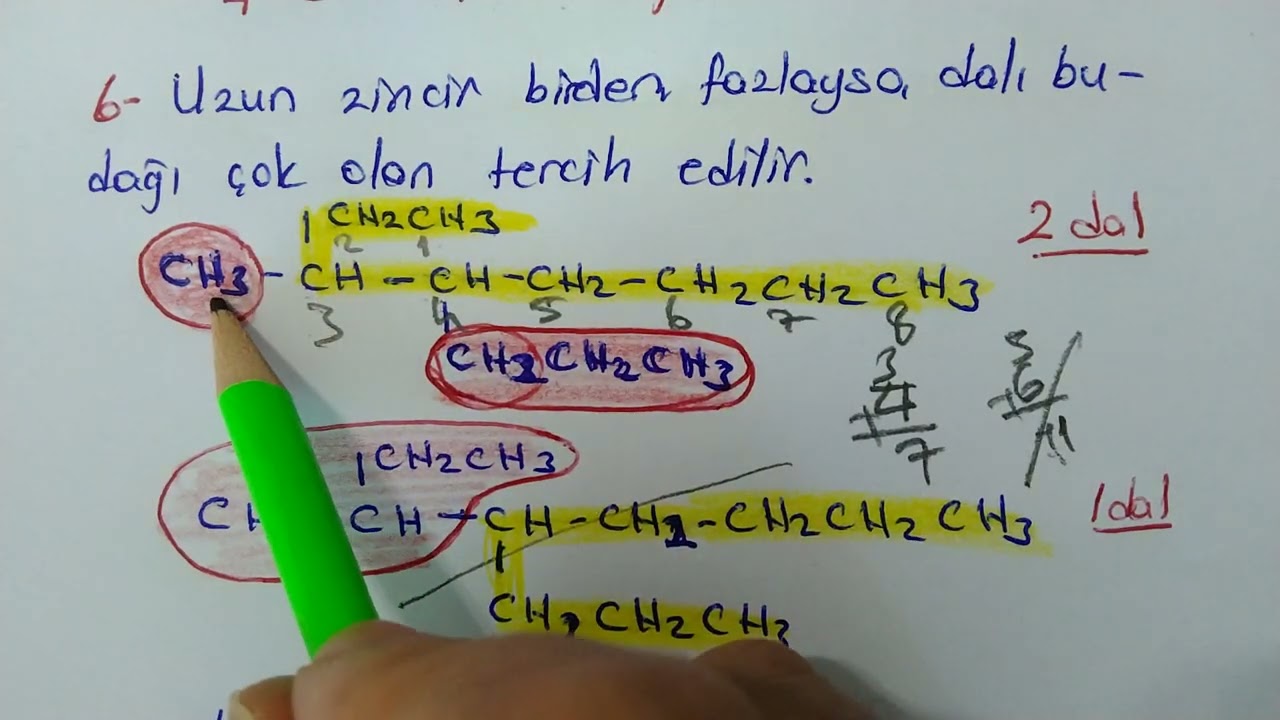 6- Uzun zincir birden fazlaysa, dalı bu-
dağı çok olan tercih edilir.
CH2CH3
2 1
2 dal
CH3 - CH - CH - CH2 - CH2 CH2 CH3
3 4 5 6 7 8
CH2 CH2 CH3
3
+4
7
5
+6
11
CH2CH3
CH - CH - CH2 - CH2 CH2 CH3
1 dal
CH2 CH2 CH3